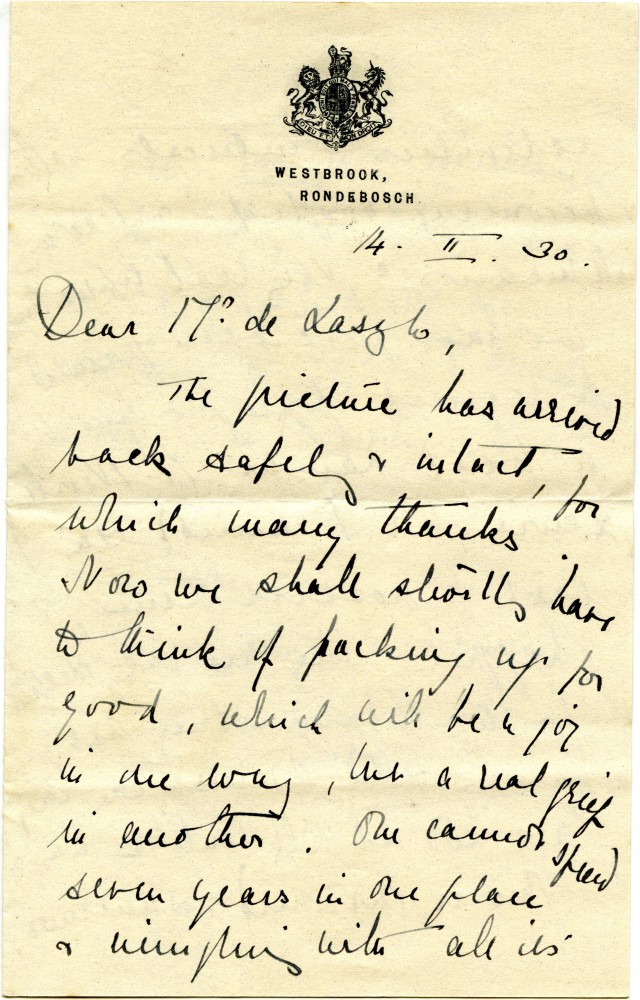 DIEU ET MON DROIT
WESTBROOK,
RONDEBOSCH
14. II. 30.
Dear Mr de Laszlo,
The picture has arrived
back safely & intact, for
which many thanks.
Now we shall shortly have
to think of packing up for
good, which will be a joy
in one way, but a real grief
in another. One cannot spend
seven years in one place
& mingling with all its